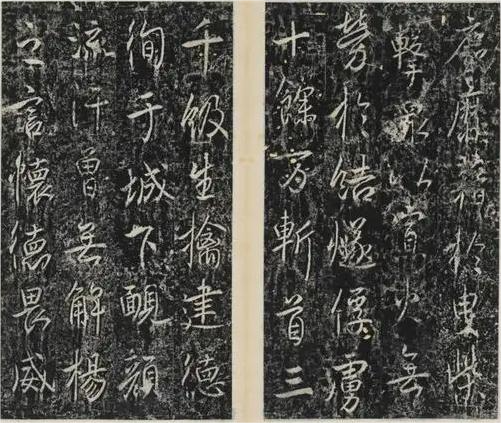 塵靡藉於曳柴
擊衆以寡火無
勞於結燧俘虜
十餘萬斬首三
千級生擒建德
徇于城下靦顏
流汗曾無解楊
之言懷德畏威